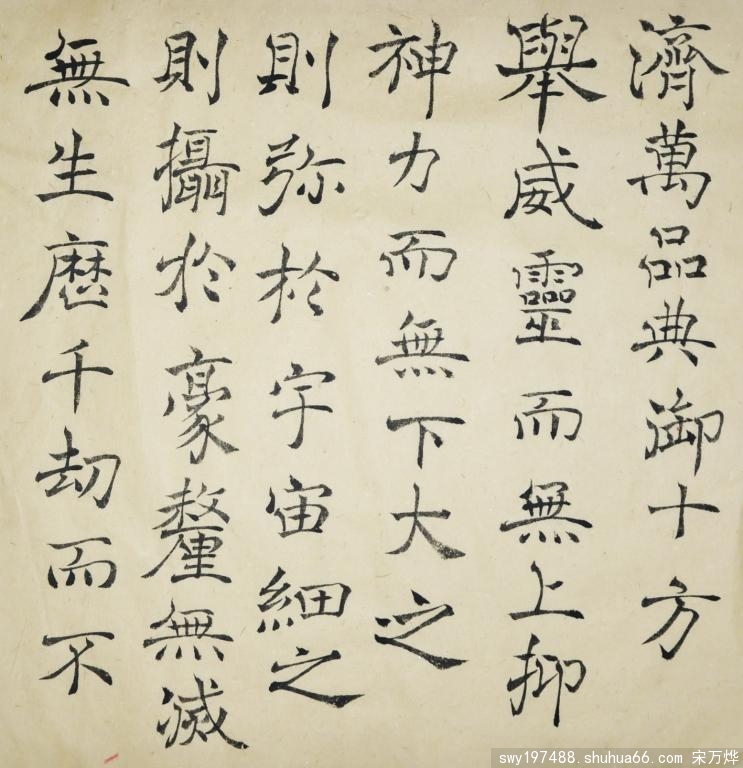 濟萬品典御十方
舉威靈而無上抑
神力而無下大之
則弥於宇宙細之
則攝於豪釐無滅
無生歷千劫而不
swy197488.shuhua66.com 宋万烨